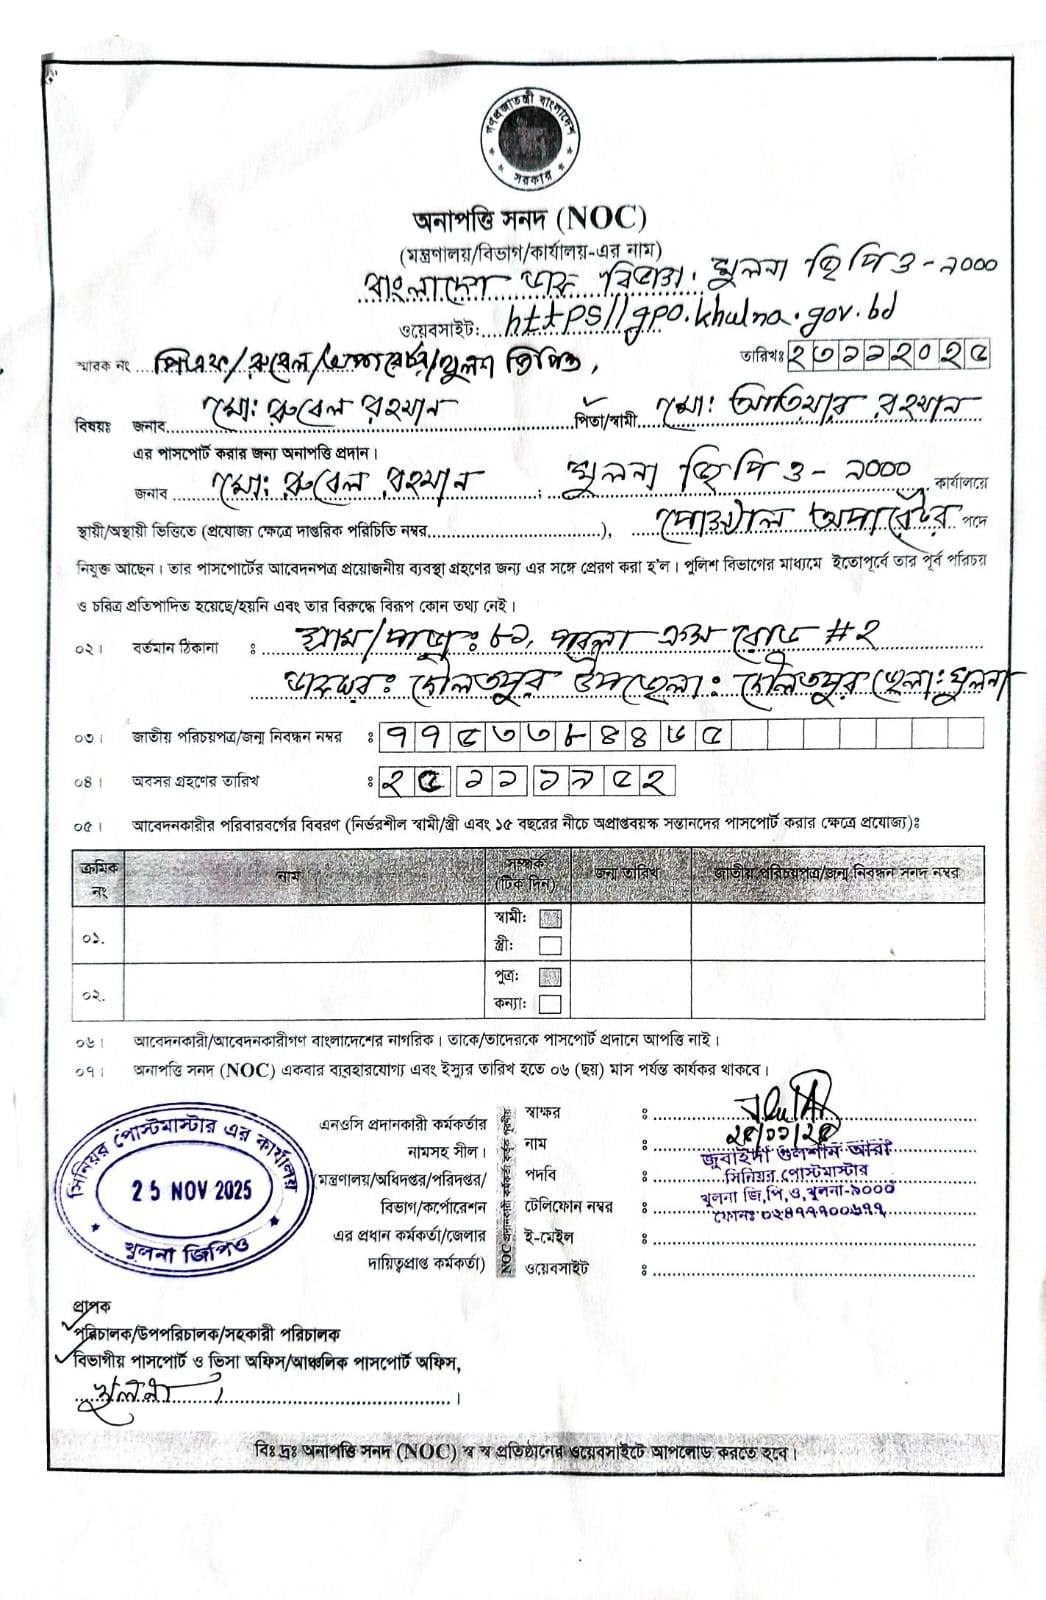 গণপ্রজাতন্ত্রী বাংলাদেশ
সরকার
অনাপত্তি সনদ (NOC)
(মন্ত্রণালয়/বিভাগ/কার্যালয়-এর নাম)
বাংলাদেশ ডাক বিভাগ. খুলনা জিপিও - ৯০০০
ওয়েবসাইট: https//gpo.khulna.gov.bd
স্মারক নং পিএফ/রুবেল/অপারেটর/খুলনা জিপিও, তারিখঃ ২৩১১২০২৫
বিষয়ঃ জনাব মোঃ রুবেল রহমান পিতা/স্বামী মোঃ আতিয়ার রহমান
এর পাসপোর্ট করার জন্য অনাপত্তি প্রদান।
জনাব মোঃ রুবেল রহমান ; খুলনা জিপিও - ৯০০০ কার্যালয়ে
স্থায়ী/অস্থায়ী ভিত্তিতে (প্রযোজ্য ক্ষেত্রে দাপ্তরিক পরিচিতি নম্বর..............................), পোস্টাল অপারেটর পদে
নিযুক্ত আছেন। তার পাসপোর্টের আবেদনপত্র প্রয়োজনীয় ব্যবস্থা গ্রহণের জন্য এর সঙ্গে প্রেরণ করা হ'ল। পুলিশ বিভাগের মাধ্যমে ইতোপূর্বে তার পূর্ব পরিচয়
ও চরিত্র প্রতিপাদিত হয়েছে/হয়নি এবং তার বিরুদ্ধে বিরূপ কোন তথ্য নেই।
০২। বর্তমান ঠিকানা : গ্রাম/পাড়া: ৮১, পাবলা ক্রস রোড #২
ডাকঘর: দৌলতপুর উপজেলা: দৌলতপুর জেলা: খুলনা
০৩। জাতীয় পরিচয়পত্র/জন্ম নিবন্ধন নম্বর : ৭৭৫৩৩৮৪৪৬৫
০৪। অবসর গ্রহণের তারিখ : ২৫১১১৯৫২
০৫। আবেদনকারীর পরিবারবর্গের বিবরণ (নির্ভরশীল স্বামী/স্ত্রী এবং ১৫ বছরের নীচে অপ্রাপ্তবয়স্ক সন্তানদের পাসপোর্ট করার ক্ষেত্রে প্রযোজ্য)ঃ
ক্রমিক নং নাম সম্পর্ক (টিক দিন) জন্ম তারিখ জাতীয় পরিচয়পত্র/জন্ম নিবন্ধন সনদ নম্বর
০১. স্বামী:
স্ত্রী:
০২. পুত্র:
কন্যা:
০৬। আবেদনকারী/আবেদনকারীগণ বাংলাদেশের নাগরিক। তাকে/তাদেরকে পাসপোর্ট প্রদানে আপত্তি নাই।
০৭। অনাপত্তি সনদ (NOC) একবার ব্যবহারযোগ্য এবং ইস্যুর তারিখ হতে ০৬ (ছয়) মাস পর্যন্ত কার্যকর থাকবে।
সিনিয়র পোস্টমাস্টার এর কার্যালয়
25 NOV 2025
খুলনা জিপিও
এনওসি প্রদানকারী কর্মকর্তার
নামসহ সীল।
(মন্ত্রণালয়/অধিদপ্তর/পরিদপ্তর/
বিভাগ/কর্পোরেশন
এর প্রধান কর্মকর্তা/জেলার
দায়িত্বপ্রাপ্ত কর্মকর্তা)
স্বাক্ষর :
নাম : জুবাইদা গুলশান আরা
পদবি : সিনিয়র পোস্টমাস্টার
খুলনা জি,পি,ও,খুলনা-৯০০০
টেলিফোন নম্বর : ফোনঃ ০২৪৭৭৭০০৬৭৭
ই-মেইল :
ওয়েবসাইট :
প্রাপক
পরিচালক/উপপরিচালক/সহকারী পরিচালক
বিভাগীয় পাসপোর্ট ও ভিসা অফিস/আঞ্চলিক পাসপোর্ট অফিস,
খুলনা।
বিঃ দ্রঃ অনাপত্তি সনদ (NOC) স্ব স্ব প্রতিষ্ঠানের ওয়েবসাইটে আপলোড করতে হবে।